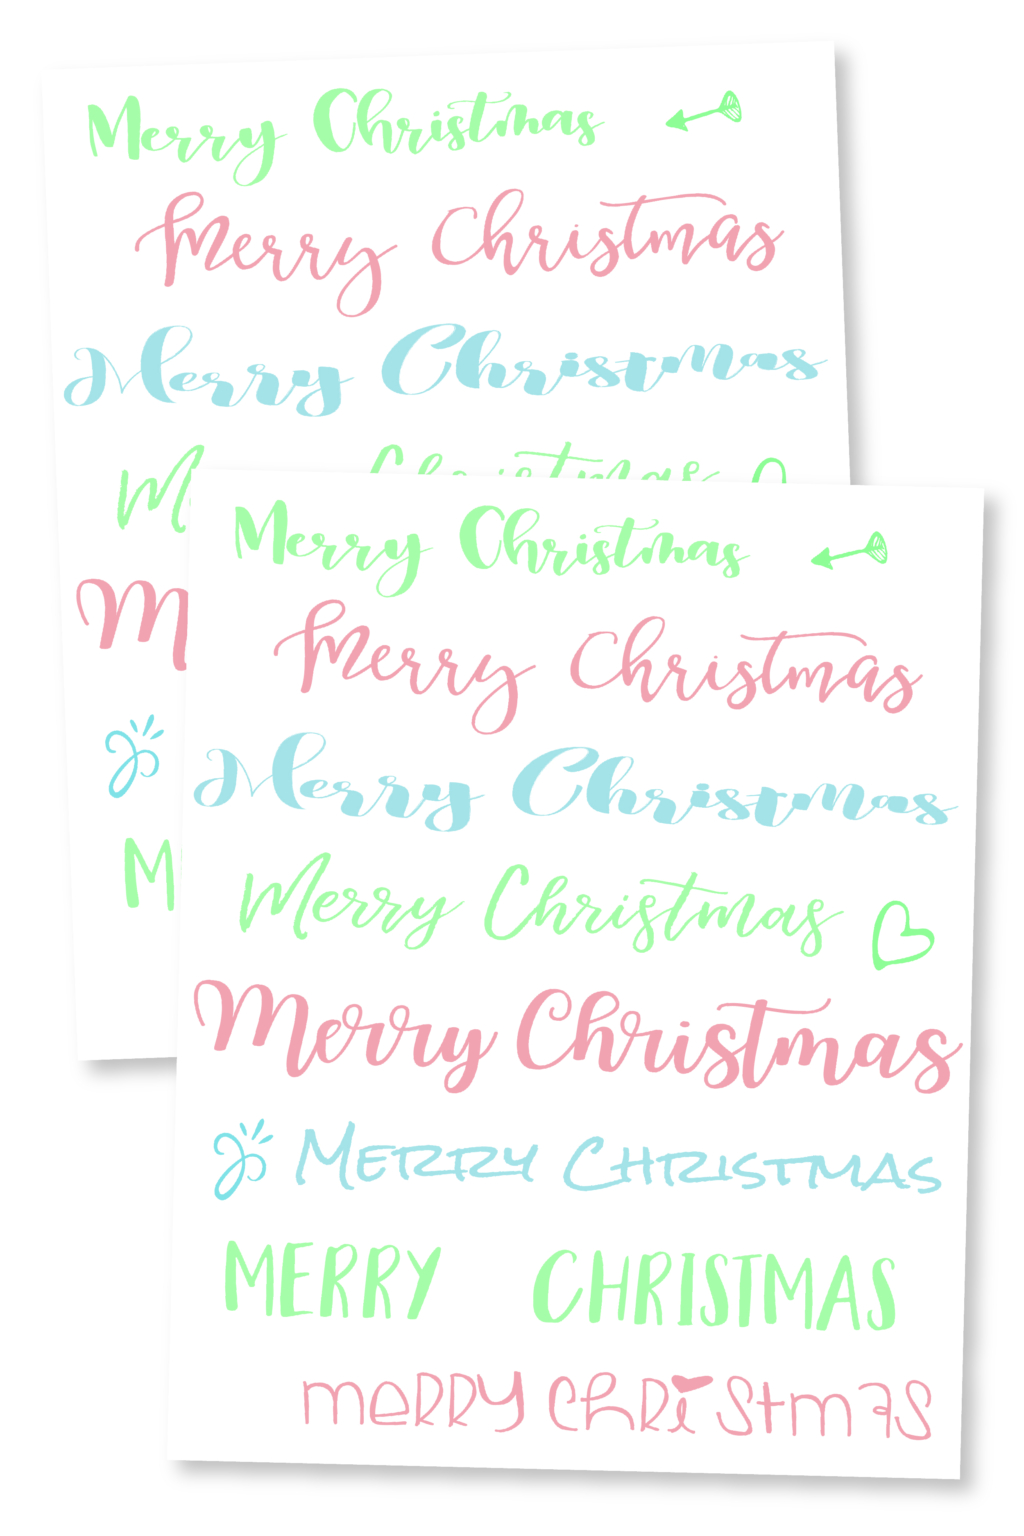 Merry Christmas
Merry Christmas
Merry Christmas
Christmas
Merry Christmas
Merry Christmas
Merry Christmas
Merry Christmas
Merry Christmas
MERRY CHRISTMAS
MERRY CHRISTMAS
meRRy chRistmas